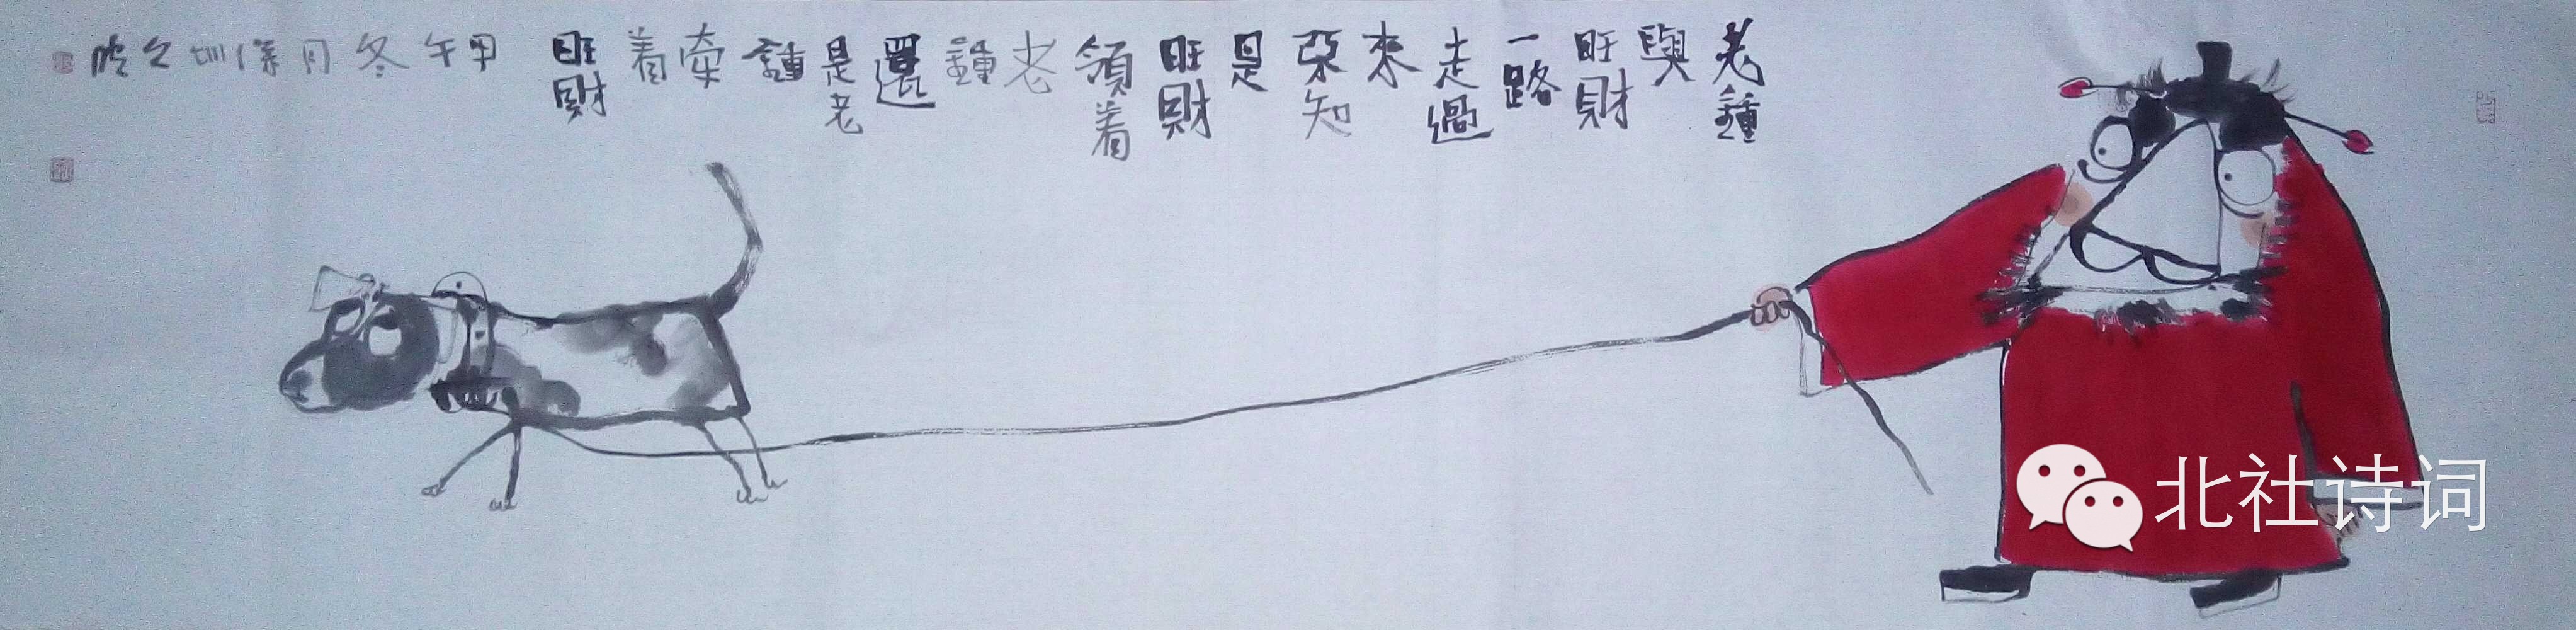 老鍾
與
旺財
一路
走過
來
不知
是
旺財
領着
老
鍾
還
是老
鍾
牽
着
旺財
甲
午
冬
月
深
圳
北社诗词